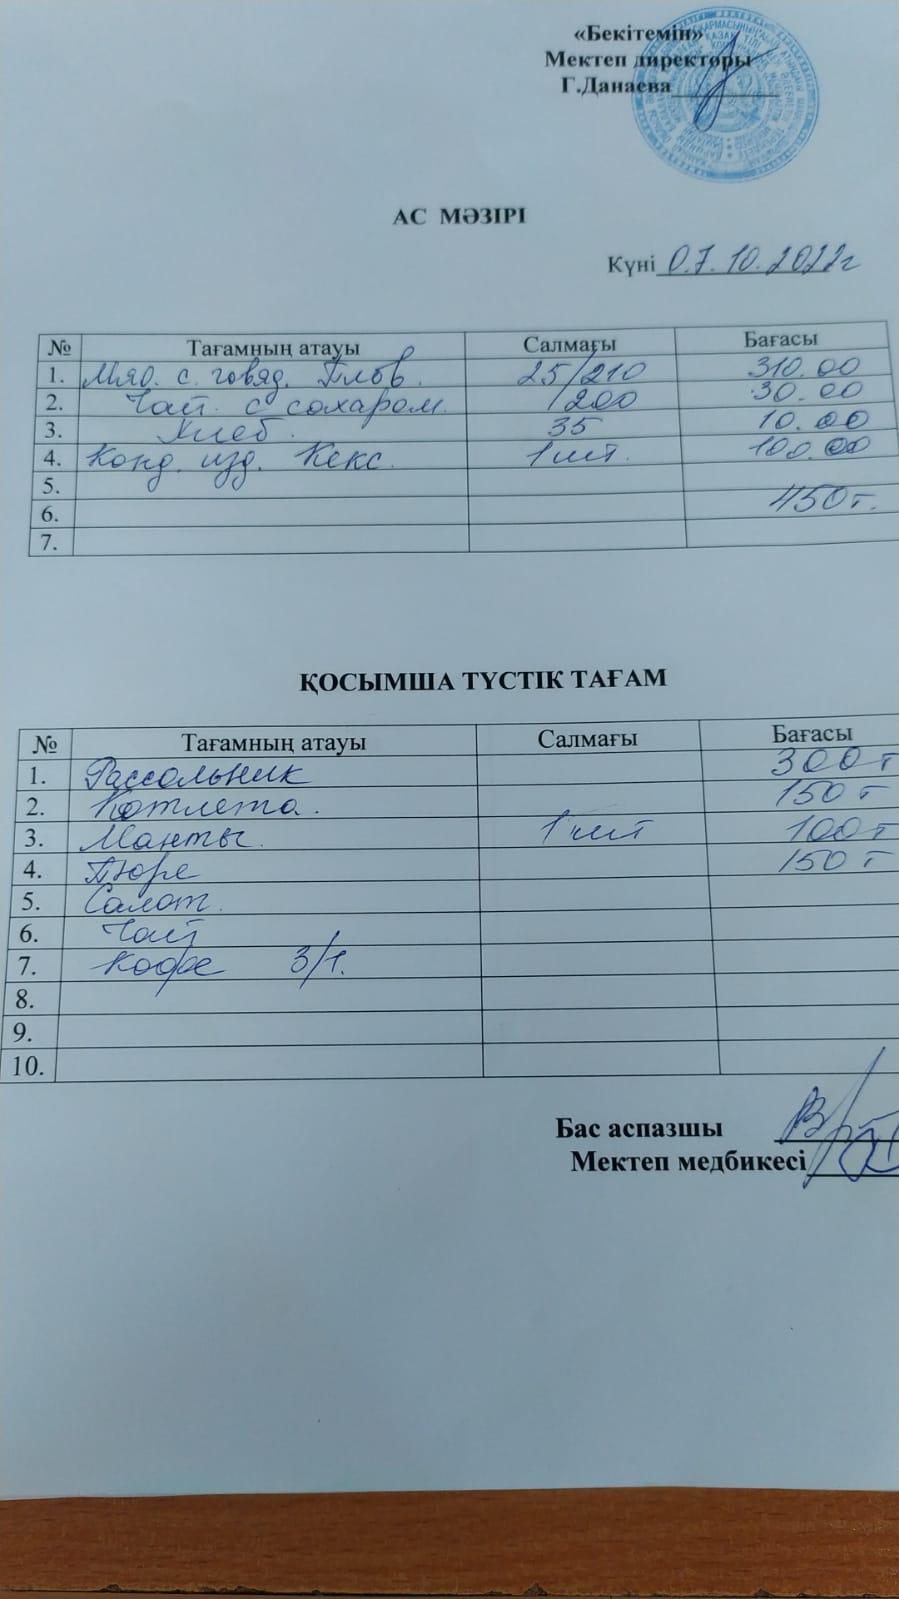 «Бекітемін»
Мектеп директоры
Г.Данаева
АС МӘЗІРІ
Күні 07.10.2022г
№ Тағамның атауы Салмағы Бағасы
1. Мяс. с. говяд. Плов. 25/210 310.00
2. Чай с сахаром. /200 30.00
3. Хлеб. 35 10.00
4. Конд. изд. Кекс. 1шт. 100.00
5.
6. 450т.
7.
ҚОСЫМША ТҮСТІК ТАҒАМ
№ Тағамның атауы Салмағы Бағасы
1. Рассольник 300т
2. Котлета. 150т
3. Манты. 1шт 100т
4. Пюре 150т
5. Салат.
6. Чай
7. Кофе 3/1.
8.
9.
10.
Бас аспазшы
Мектеп медбикесі